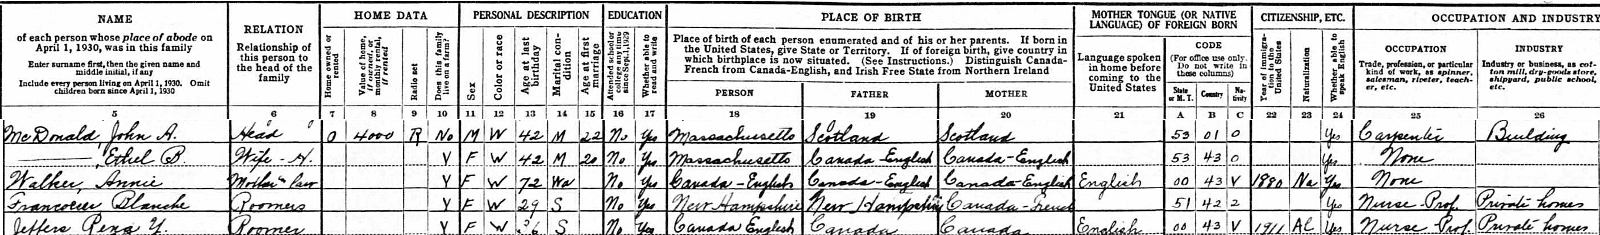 NAME
of each person whose place of abode on
April 1, 1930, was in this family
Enter surname first, then the given name and
middle initial, if any
Include every person living on April 1, 1930. Omit
children born since April 1, 1930
5
RELATION
Relationship of
this person to
the head of the
family
6
HOME DATA
Home owned or rented
Value of home, if owned, or monthly rental, if rented
Radio set
Does this family live on a farm?
7 8 9 10
PERSONAL DESCRIPTION
Sex
Color or race
Age at last birthday
Marital condition
Age at first marriage
11 12 13 14 15
EDUCATION
Attended school or college any time since Sept. 1, 1929
Whether able to read and write
16 17
PLACE OF BIRTH
Place of birth of each person enumerated and of his or her parents. If born in
the United States, give State or Territory. If of foreign birth, give country in
which birthplace is now situated. (See Instructions.) Distinguish Canada-
French from Canada-English, and Irish Free State from Northern Ireland
PERSON FATHER MOTHER
18 19 20
MOTHER TONGUE (OR NATIVE
LANGUAGE) OF FOREIGN BORN
Language spoken
in home before
coming to the
United States
21
CODE
(For office use only.
Do not write in
these columns)
State
or M. T.
Country
Na-
tivity
A B C
CITIZENSHIP, ETC.
Year of immigra-
tion to the
United States
Naturalization
Whether able to
speak English
22 23 24
OCCUPATION AND INDUSTRY
OCCUPATION
Trade, profession, or particular
kind of work, as spinner,
salesman, riveter, teach-
er, etc.
25
INDUSTRY
Industry or business, as cot-
ton mill, dry-goods store,
shipyard, public school,
etc.
26
McDonald, John A. Head O 4000 R No M W 42 M 22 No Yes Massachusetts Scotland Scotland 53 01 0 Yes Carpenter Building
——, Ethel B. Wife-H. V F W 42 M 20 No Yes Massachusetts Canada-English Canada-English 53 43 0 Yes None
Walker, Annie Mother-law V F W 72 Wd No Yes Canada-English Canada-English Canada-English English 00 43 V 1880 Na Yes None
Blanche Roomers V F W 29 S No Yes New Hampshire New Hampshire Canada-French 51 42 2 Yes Nurse-Prof. Private homes
Jeffers Y. Roomer V F W S No Yes Canada English Canada Canada English 00 43 V 1911 AL Yes Nurse-Prof. Private homes